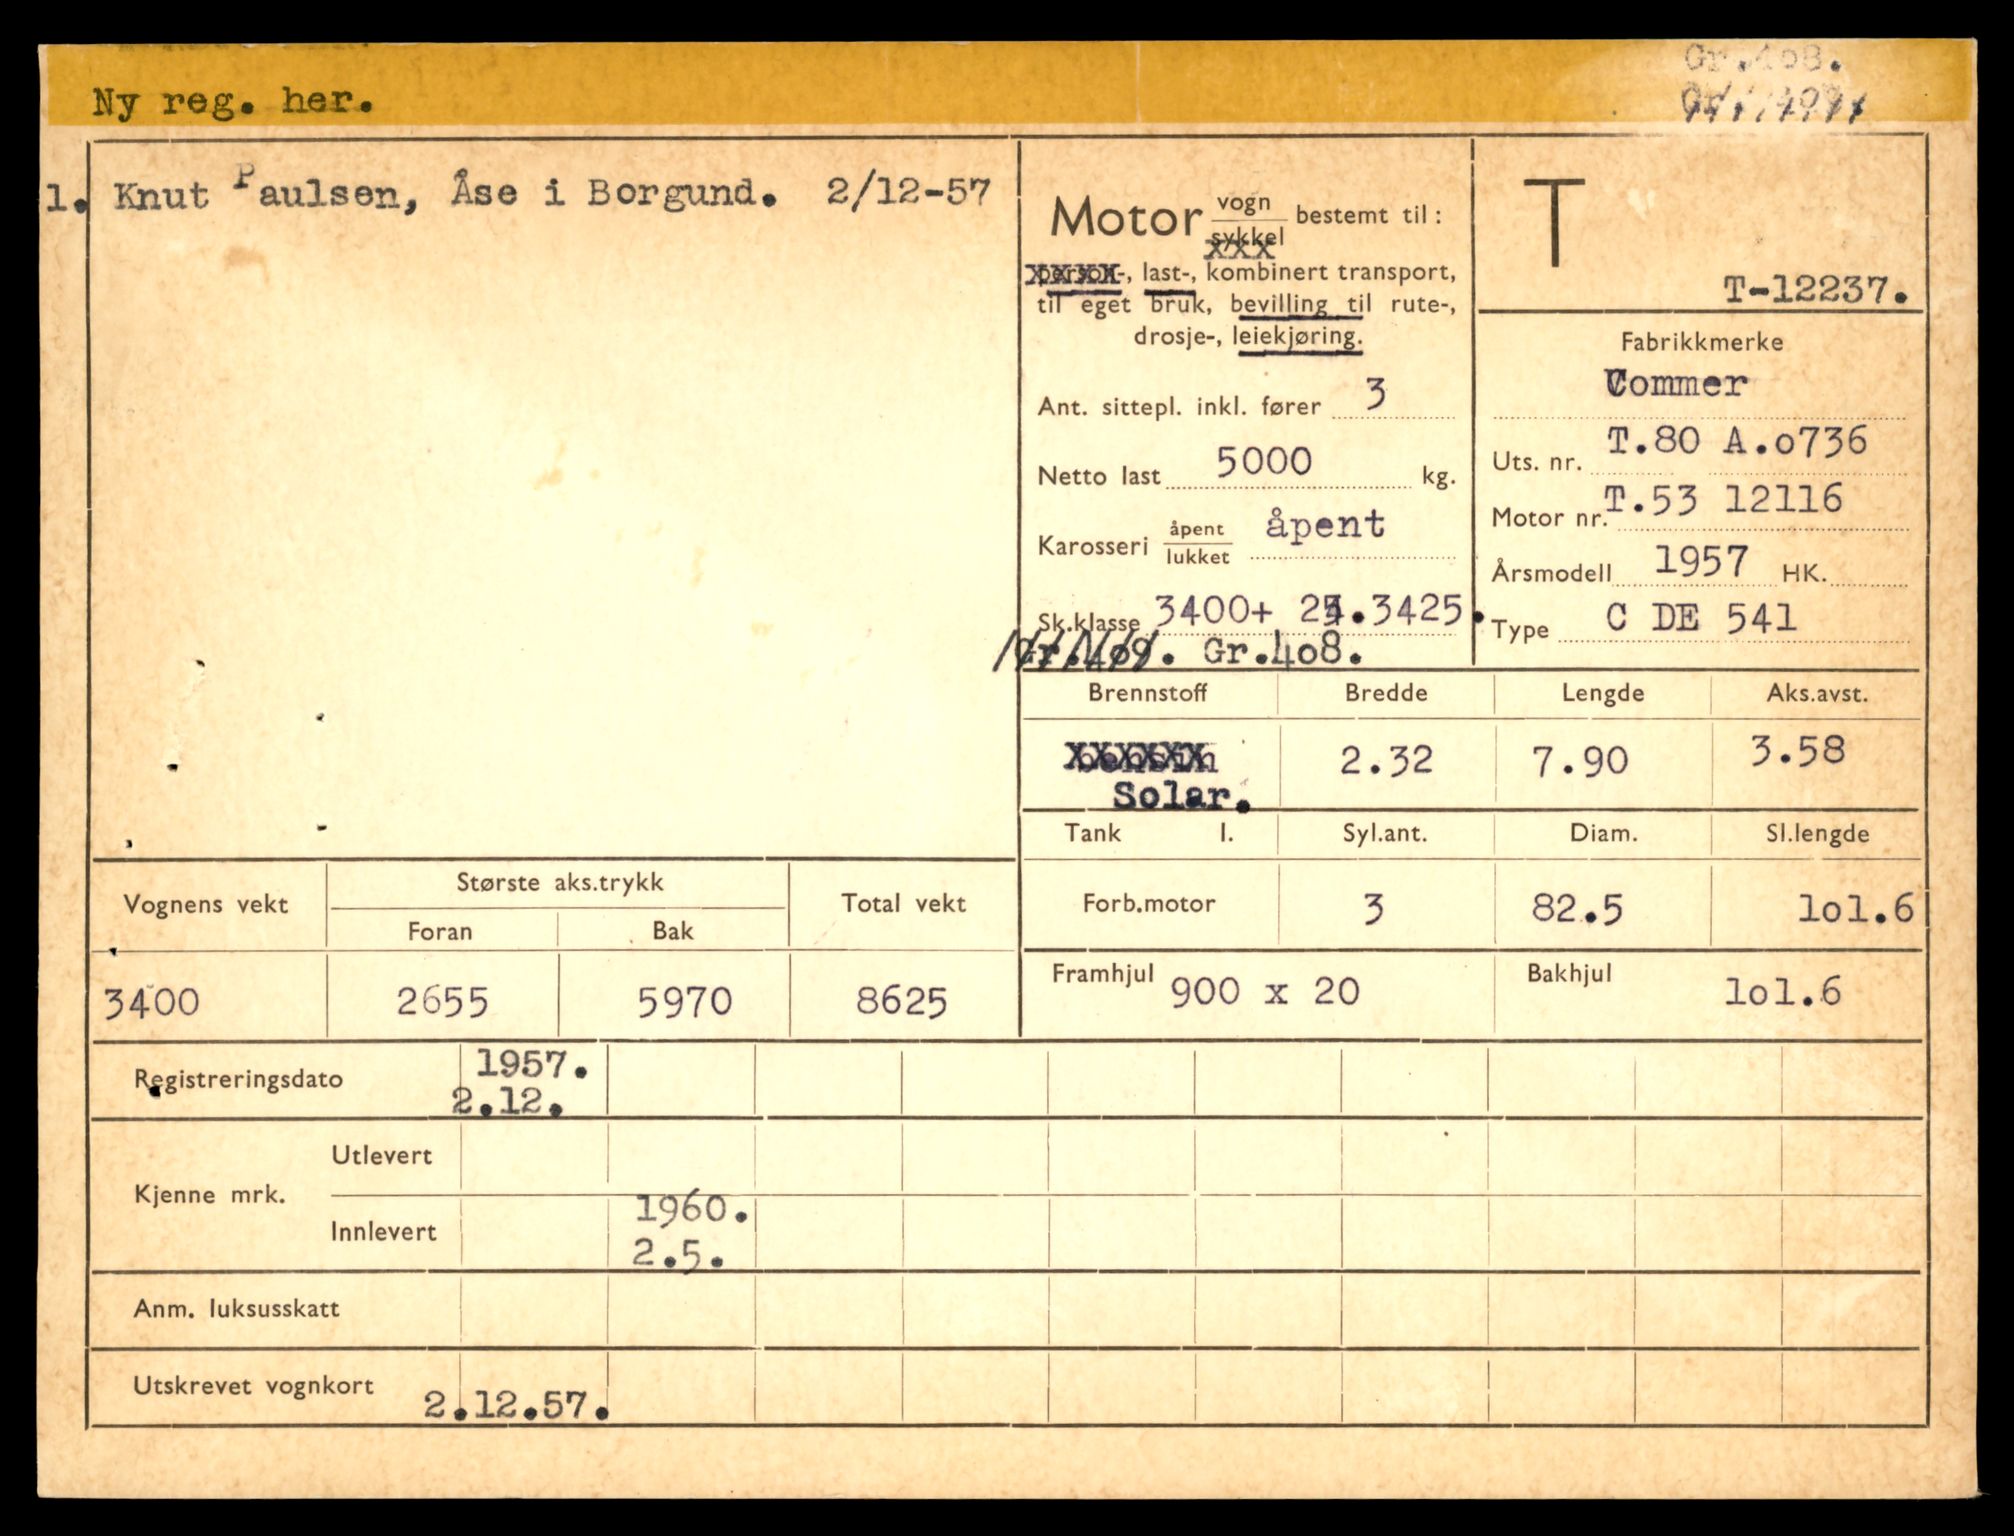 Gr.408.
Ny reg. her.
1. Knut Paulsen, Åse i Borgund. 2/12-57
Motor vogn sykkel bestemt til:
person-, last-, kombinert transport,
til eget bruk, bevilling til rute-,
drosje-, leiekjøring.
Ant. sittepl. inkl. fører 3
Netto last 5000 kg.
Karosseri åpent lukket åpent
Sk.klasse 3400+ 25.3425.
Gr.409. Gr.408.
T
T-12237.
Fabrikkmerke
Commer
Uts. nr. T.80 A.o736
Motor nr. T.53 12116
Årsmodell 1957 HK.
Type C DE 541
Brennstoff Bredde Lengde Aks.avst.
bensin 2.32 7.90 3.58
Solar.
Tank l. Syl.ant. Diam. Sl.lengde
Forb.motor 3 82.5 lol.6
Framhjul 900 x 20 Bakhjul lol.6
Vognens vekt Største aks.trykk Total vekt
Foran Bak
3400 2655 5970 8625
Registreringsdato 1957.
2.12.
Kjenne mrk. Utlevert
Innlevert 1960.
2.5.
Anm. luksusskatt
Utskrevet vognkort 2.12.57.